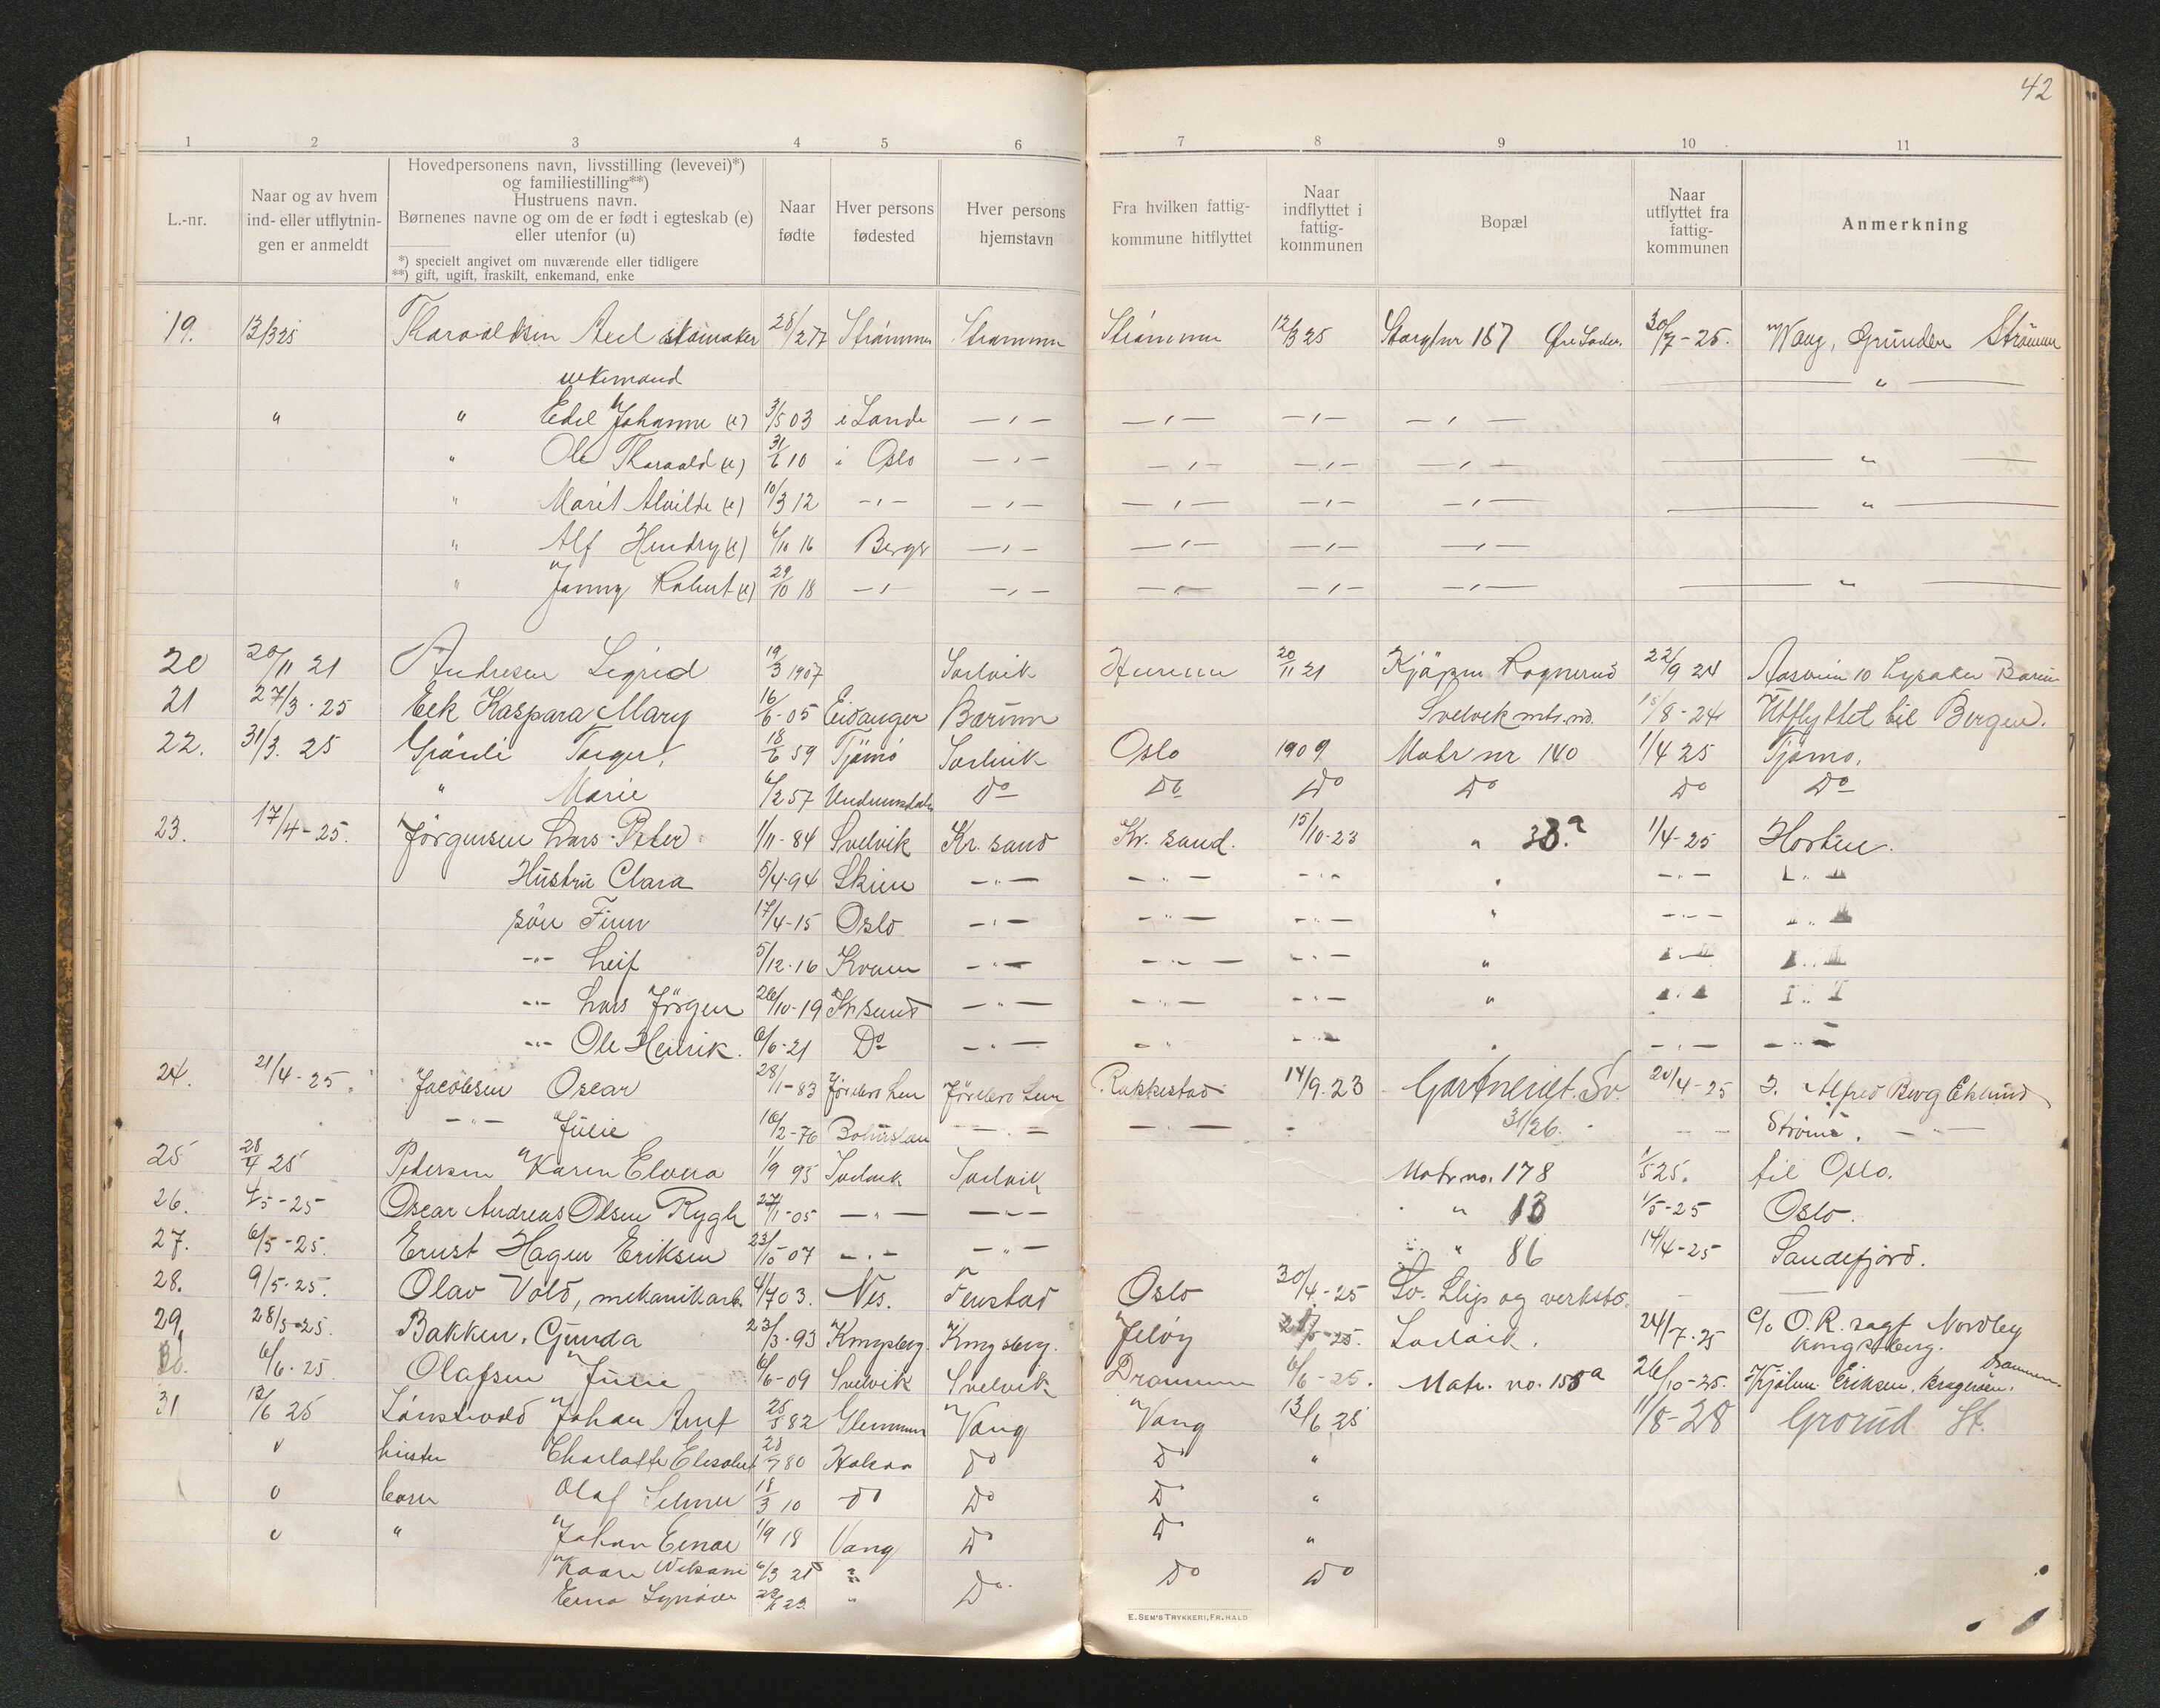 42
1 2 3 4 5 6 7 8 9 10 11
L.-nr.
Naar og av hvem
ind- eller utflytnin-
gen er anmeldt
Hovedpersonens navn, livsstilling (levevei)*)
og familiestilling**)
Hustruens navn.
Børnenes navne og om de er født i egteskab (e)
eller utenfor (u)
*) specielt angivet om nuværende eller tidligere
**) gift, ugift, fraskilt, enkemand, enke
Naar
fødte
Hver persons
fødested
Hver persons
hjemstavn
Fra hvilken fattig-
kommune hitflyttet
Naar
indflyttet i
fattig-
kommunen
Bopæl
Naar
utflyttet fra
fattig-
kommunen
Anmerkning
19. 13/3 25 Axel skomaker 28/2 77 Strømmen Strømmen Strømmen 12/3 25 187 30/7-25. Strømm
enkemand "
" " Edel Johanne (e) 3/5 03 i Sande — " — — " — — " — — " —
" Ole Tharald (e) 31/6 10 i Oslo — " — — " — — " — — " — "
" Marit Alvilde (e) 10/3 12 — " — — " — — " — — " — — " — "
" Alf Hendry (e) 6/10 16 Berger — " — — " — — " — — " —
" Jonny Robert (e) 29/10 18 — " — — " — — " — — " — — " — "
20 20/11 21 Andresen Sigrid 19/3 1907 Svelvik Hurum 20/11 21 22/9 24 10 Lysaker Bærum
21 27/3. 25 Eek Kaspara Mary 16/6-05 Eidanger Bærum Svelvik mtr. no. 15/8-24 Utflyttet til Bergen.
22. 31/3. 25 18/6 59 Tjømø Svelvik Oslo 1909 Matr nr 140 1/4 25 Tjømø.
" Marie 6/2 57 Do Do Do Do Do Do
23. 17/4-25. Jörgensen Lars Peter 1/11-84 Svelvik Kr. sand Kr. sand. 15/10-23 " 33.a 1/4-25 Horten.
Hustru Clara 5/4-94 Skien — " — — " — — " — " — " — — " —
sön Finn 17/4-15 Oslo — " — — " — — " — " — " — — " —
— " — Leif 5/12-16 Kvam — " — — " — — " — " — " — — " —
— " — Lars Jörgen 26/10-19 Kr. sund — " — — " — — " — " — " — — " —
— " — Ole Henrik. 6/6-21 Do — " — — " — — " — " — " — — " —
24. 21/4-25. Jacobsen Oscar 28/1-83 Rakkestad 14/9.23 Gartneriet. Sv. 20/4-25 Alfred Berg Eklund
— " — Julie 16/2-76 — " — — " — 31/26. Strömm. — " —
25 28/4 25 Petersen Karen Elvera 1/9 95 Svelvik Svelvik Matr. no. 178 1/5 25. til Oslo.
26. 4/5-25 Oscar Andreas Olsen Rygh 27/1-05 — " — — " — " 13 1/5-25 Oslo.
27. 6/5-25. Ernst Hagen Eriksen 23/10 07 — " — — " — " 86 14/4-25 Sandefjord.
28. 9/5-25. Olav Vold, mekanikarb. 4/7 03. Nes. Oslo 30/4-25 Sv. Slip og verksted. —
29. 28/5-25. Bakken. Gunda 23/3-93 Kongsberg. Kongsberg. Jeløy Svelvik. 24/7-25 c/o O. R. Nordby
Kongsberg.
30. 6/6-25 Olafsen Junie 6/6-09 Svelvik Svelvik Drammen 6/6-25. Matr. no. 155a 26/10-25. Eriksen. Bragerøen. Drammen.
31 12/6 25 Johan Arnt 25/5 82 Glemmen Vang Vang 13/6 25 11/8-28 Grorud St.
" hustru Charlotte Elisabet 80 Do Do "
" barn Olaf 18/3 10 do Do Do "
" " Johan Einar 1/9 18 Vang Do Do "
Kaare 6/3 21 " Do Do Do
Erna Synøve " Do
E. SEM'S TRYKKERI, FR.HALD